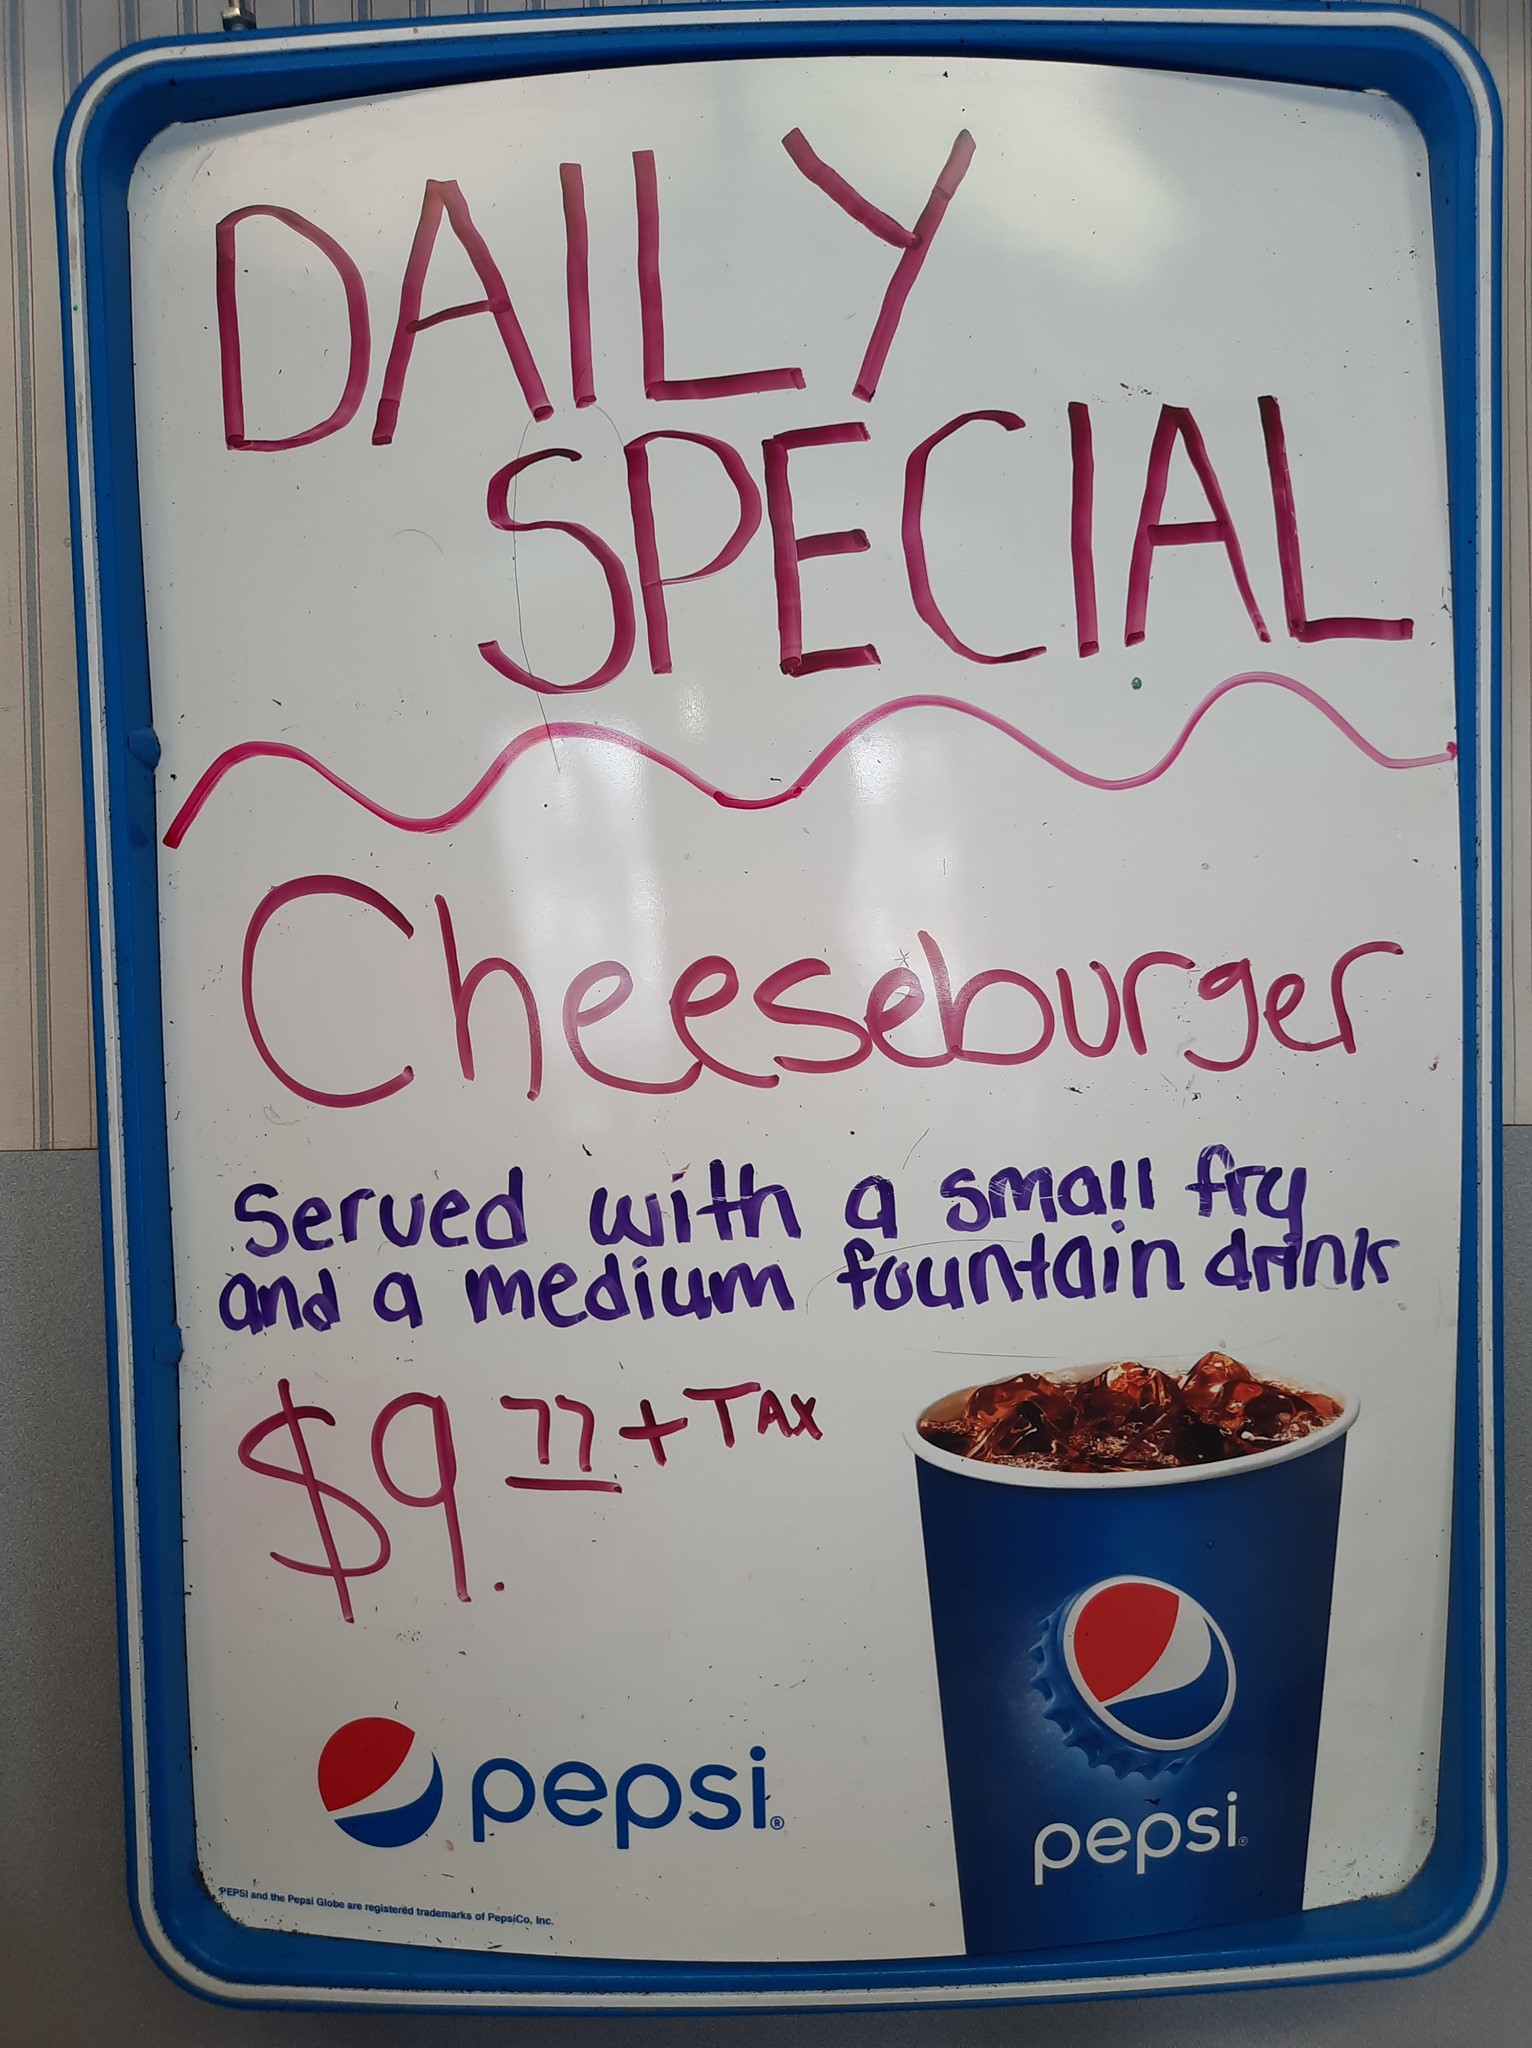 DAILY
SPECIAL
Cheeseburger
Served with a small fry
and a medium fountain drink
$9.77 + TAX
pepsi®
pepsi®
PEPSI and the Pepsi Globe are registered trademarks of PepsiCo, Inc.